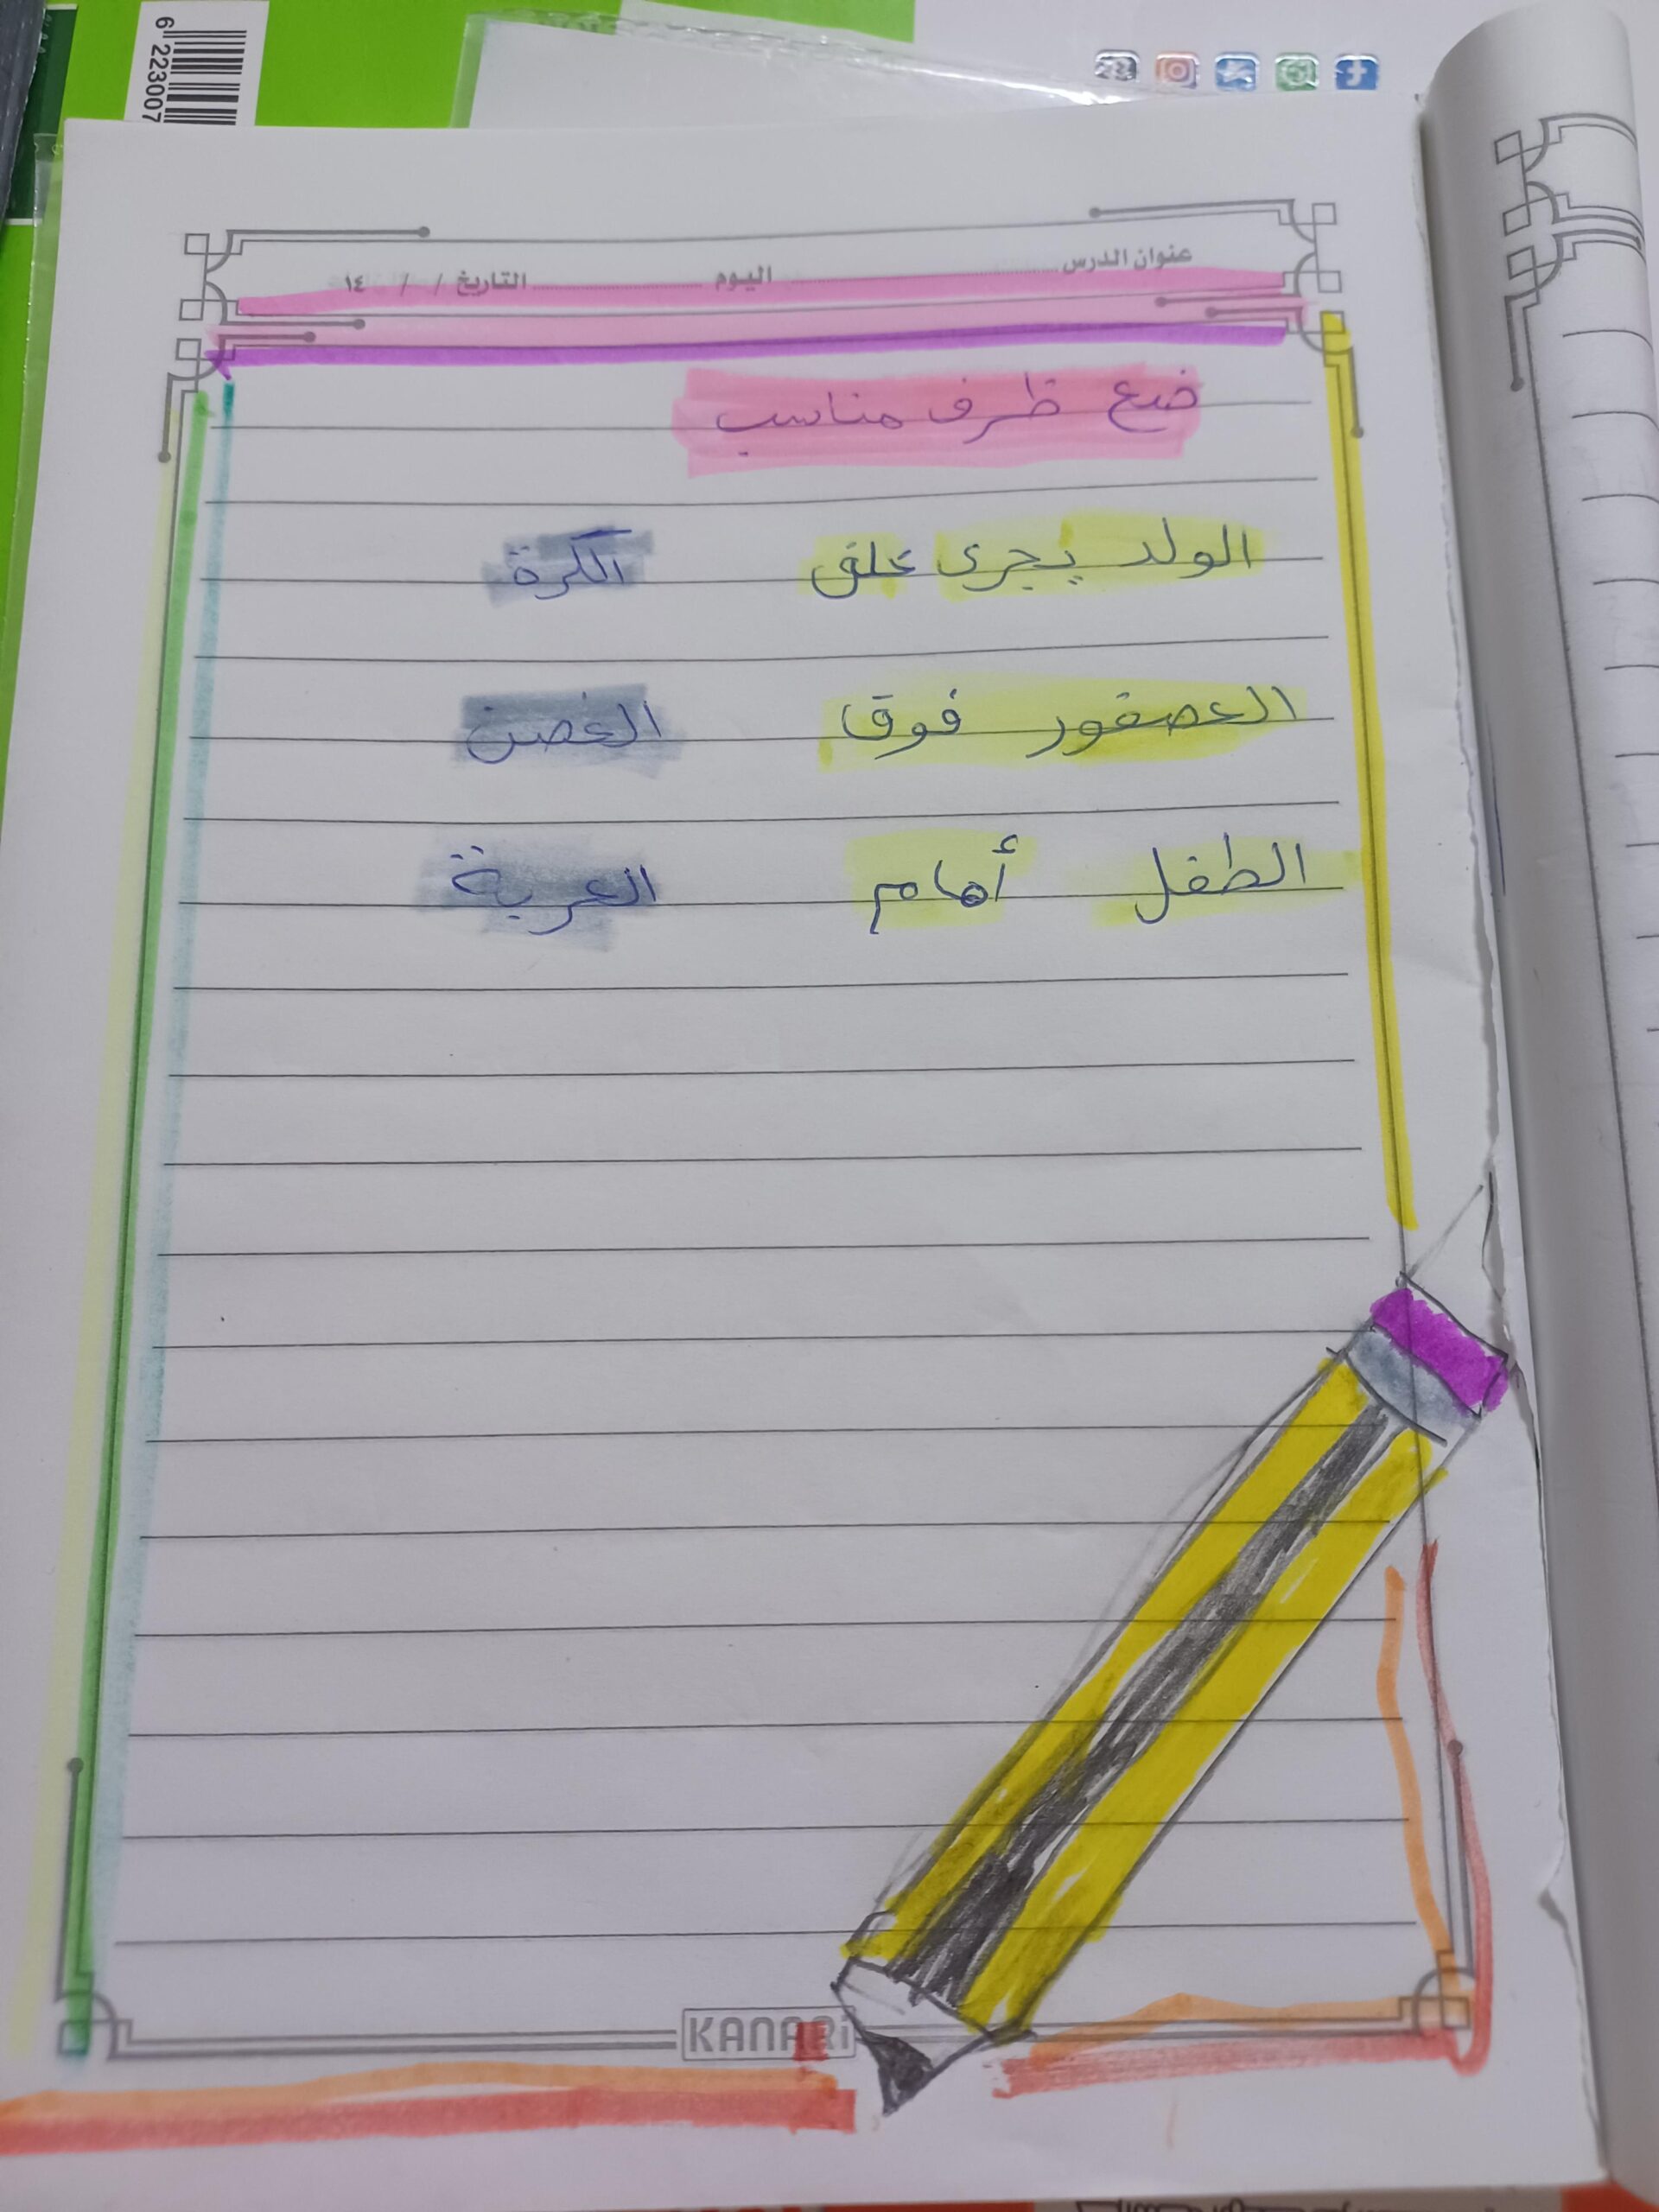 6 223007
عنوان الدرس
اليوم
التاريخ / / ١٤
ضع ظرف مناسب
الولد يجرى خلق الكرة
العصفور فوق الغصن
الطفل أمام العربة
KANARi